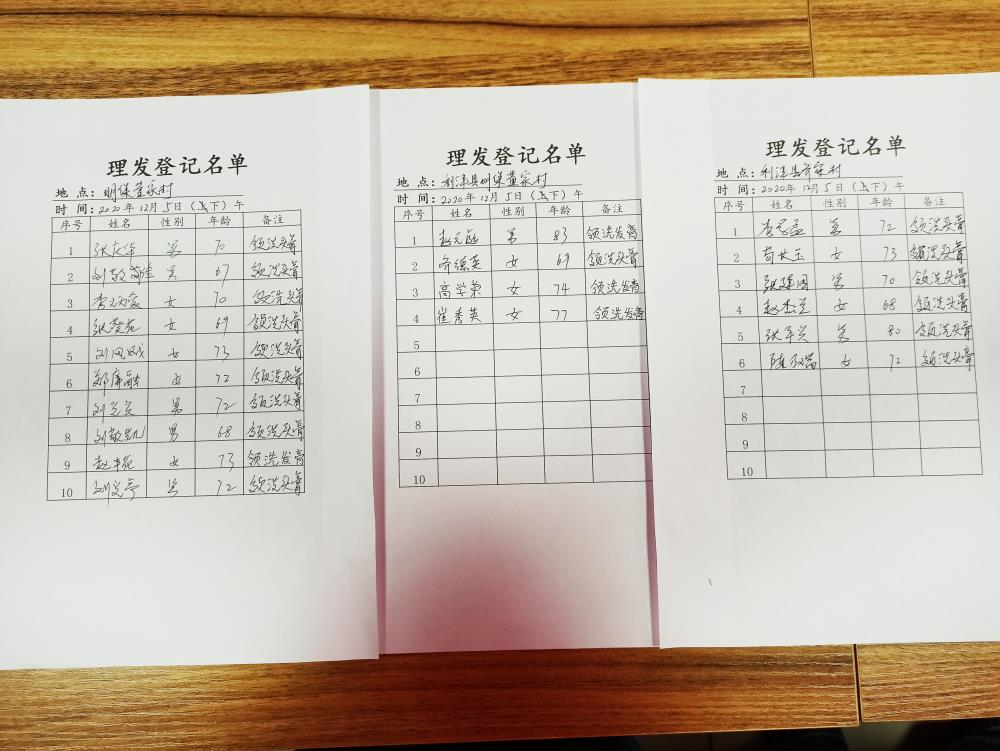 理发登记名单
地 点：明集董家村
时 间：2020年 12月 5日（上下）午
序号 姓名 性别 年龄 备注
1 张庆华 男 70 领洗头膏
2 刘敬 男 67 领洗头膏
3 女 70 领洗头膏
4 张 女 69 领洗头膏
5 刘凤 女 73 领洗头膏
6 郑 女 72 领洗头膏
7 刘 男 72 领洗头膏
8 刘敬凯 男 68 领洗头膏
9 赵 女 73 领洗发膏
10 刘 男 72 领洗头膏
理发登记名单
地 点：利津县明集董家村
时 间：2020年 12月 5日（上下）午
序号 姓名 性别 年龄 备注
1 赵元 男 83 领洗发膏
2 齐德英 女 69 领洗发膏
3 高学荣 女 74 领洗发膏
4 崔秀英 女 77 领洗发膏
5
6
7
8
9
10
理发登记名单
地 点：利津县 家村
时 间：2020年 12月 5日（上下）午
序号 姓名 性别 年龄 备注
1 李 男 72 领洗头膏
2 苟 玉 女 73 领洗头膏
3 张建国 男 70 领洗头膏
4 赵 女 68 领洗头膏
5 张 男 80 领洗头膏
6 陈 女 72 领洗头膏
7
8
9
10